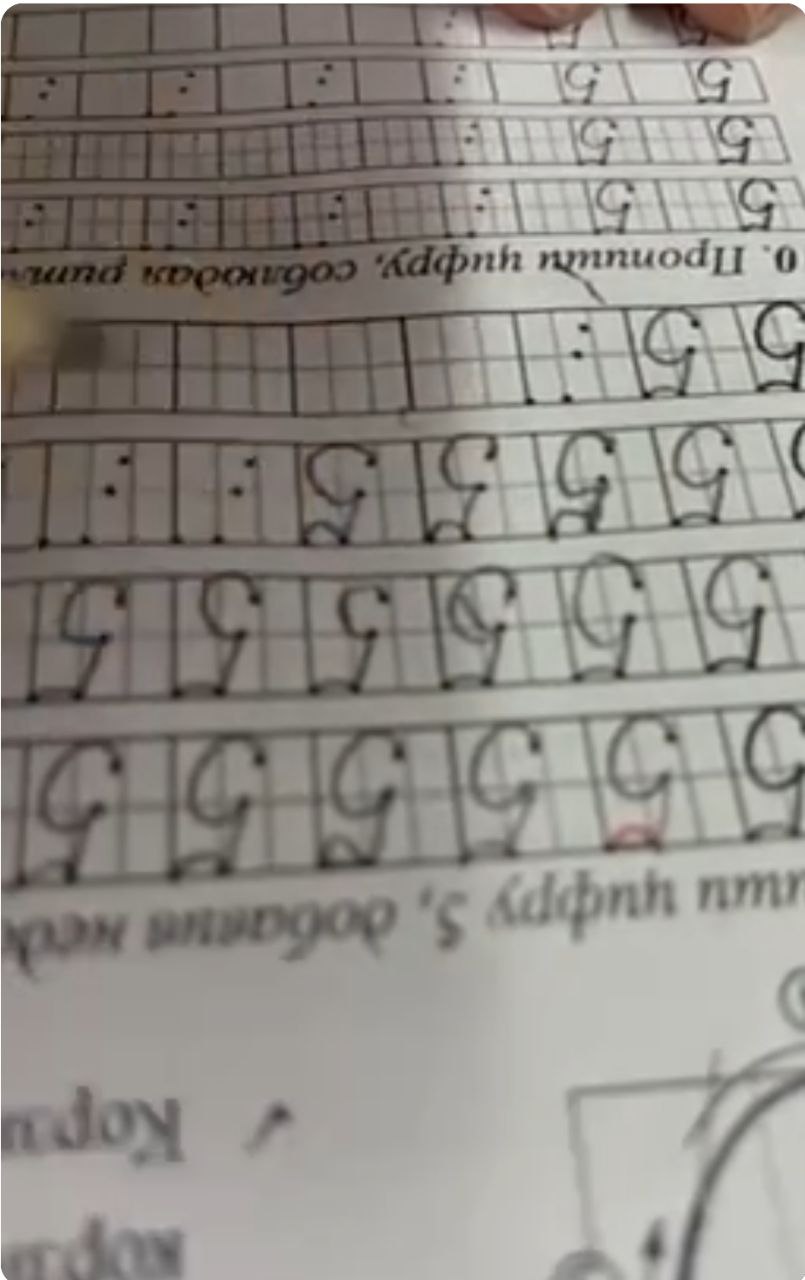 Корз
цифру 5, добавив
5 5 5 5 5 5
5 5 5 5 5 5
5 5 5 5
5 5
0. Пропиши цифру, соблюдая
5 5
5 5
5 5